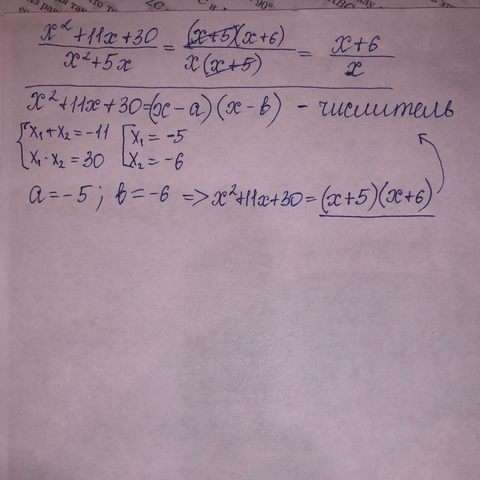 x²+11x+30 / x²+5x = (x+5)(x+6) / x(x+5) = x+6 / x
x²+11x+30=(x-a)(x-b) - числитель
{x₁+x₂=-11 [x₁=-5
{x₁·x₂=30 [x₂=-6
a=-5; b=-6 => x²+11x+30=(x+5)(x+6)